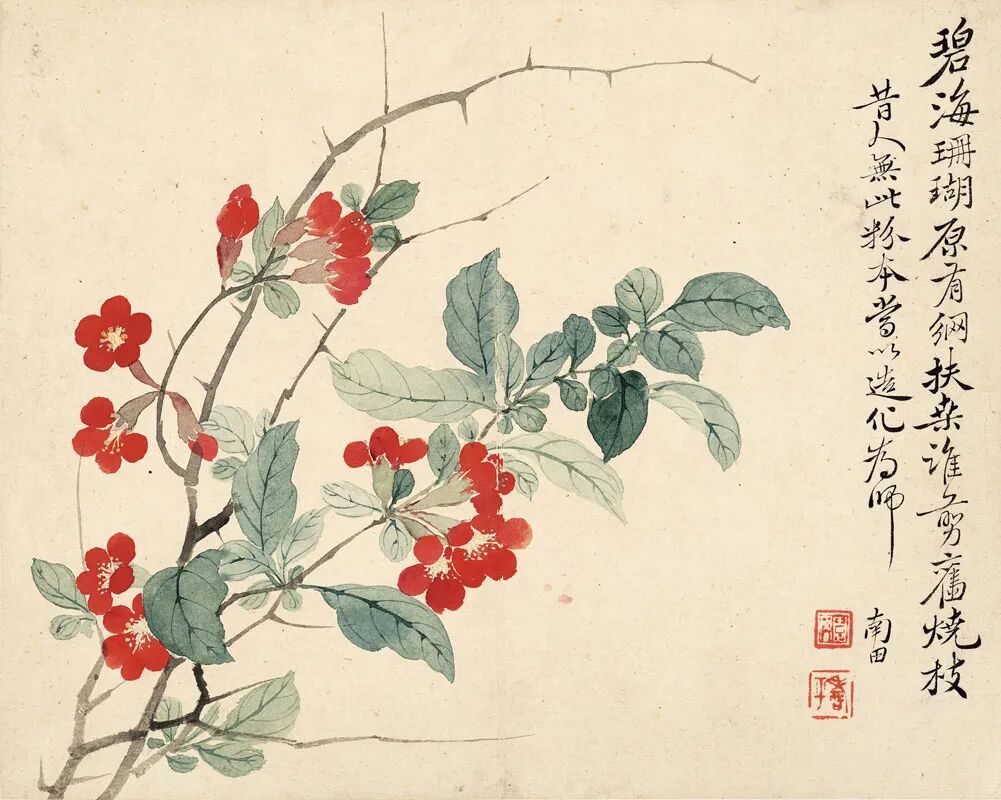 碧海珊瑚原有網扶桒誰剪舊燒枝
昔人無此粉本當以造化為師
南田